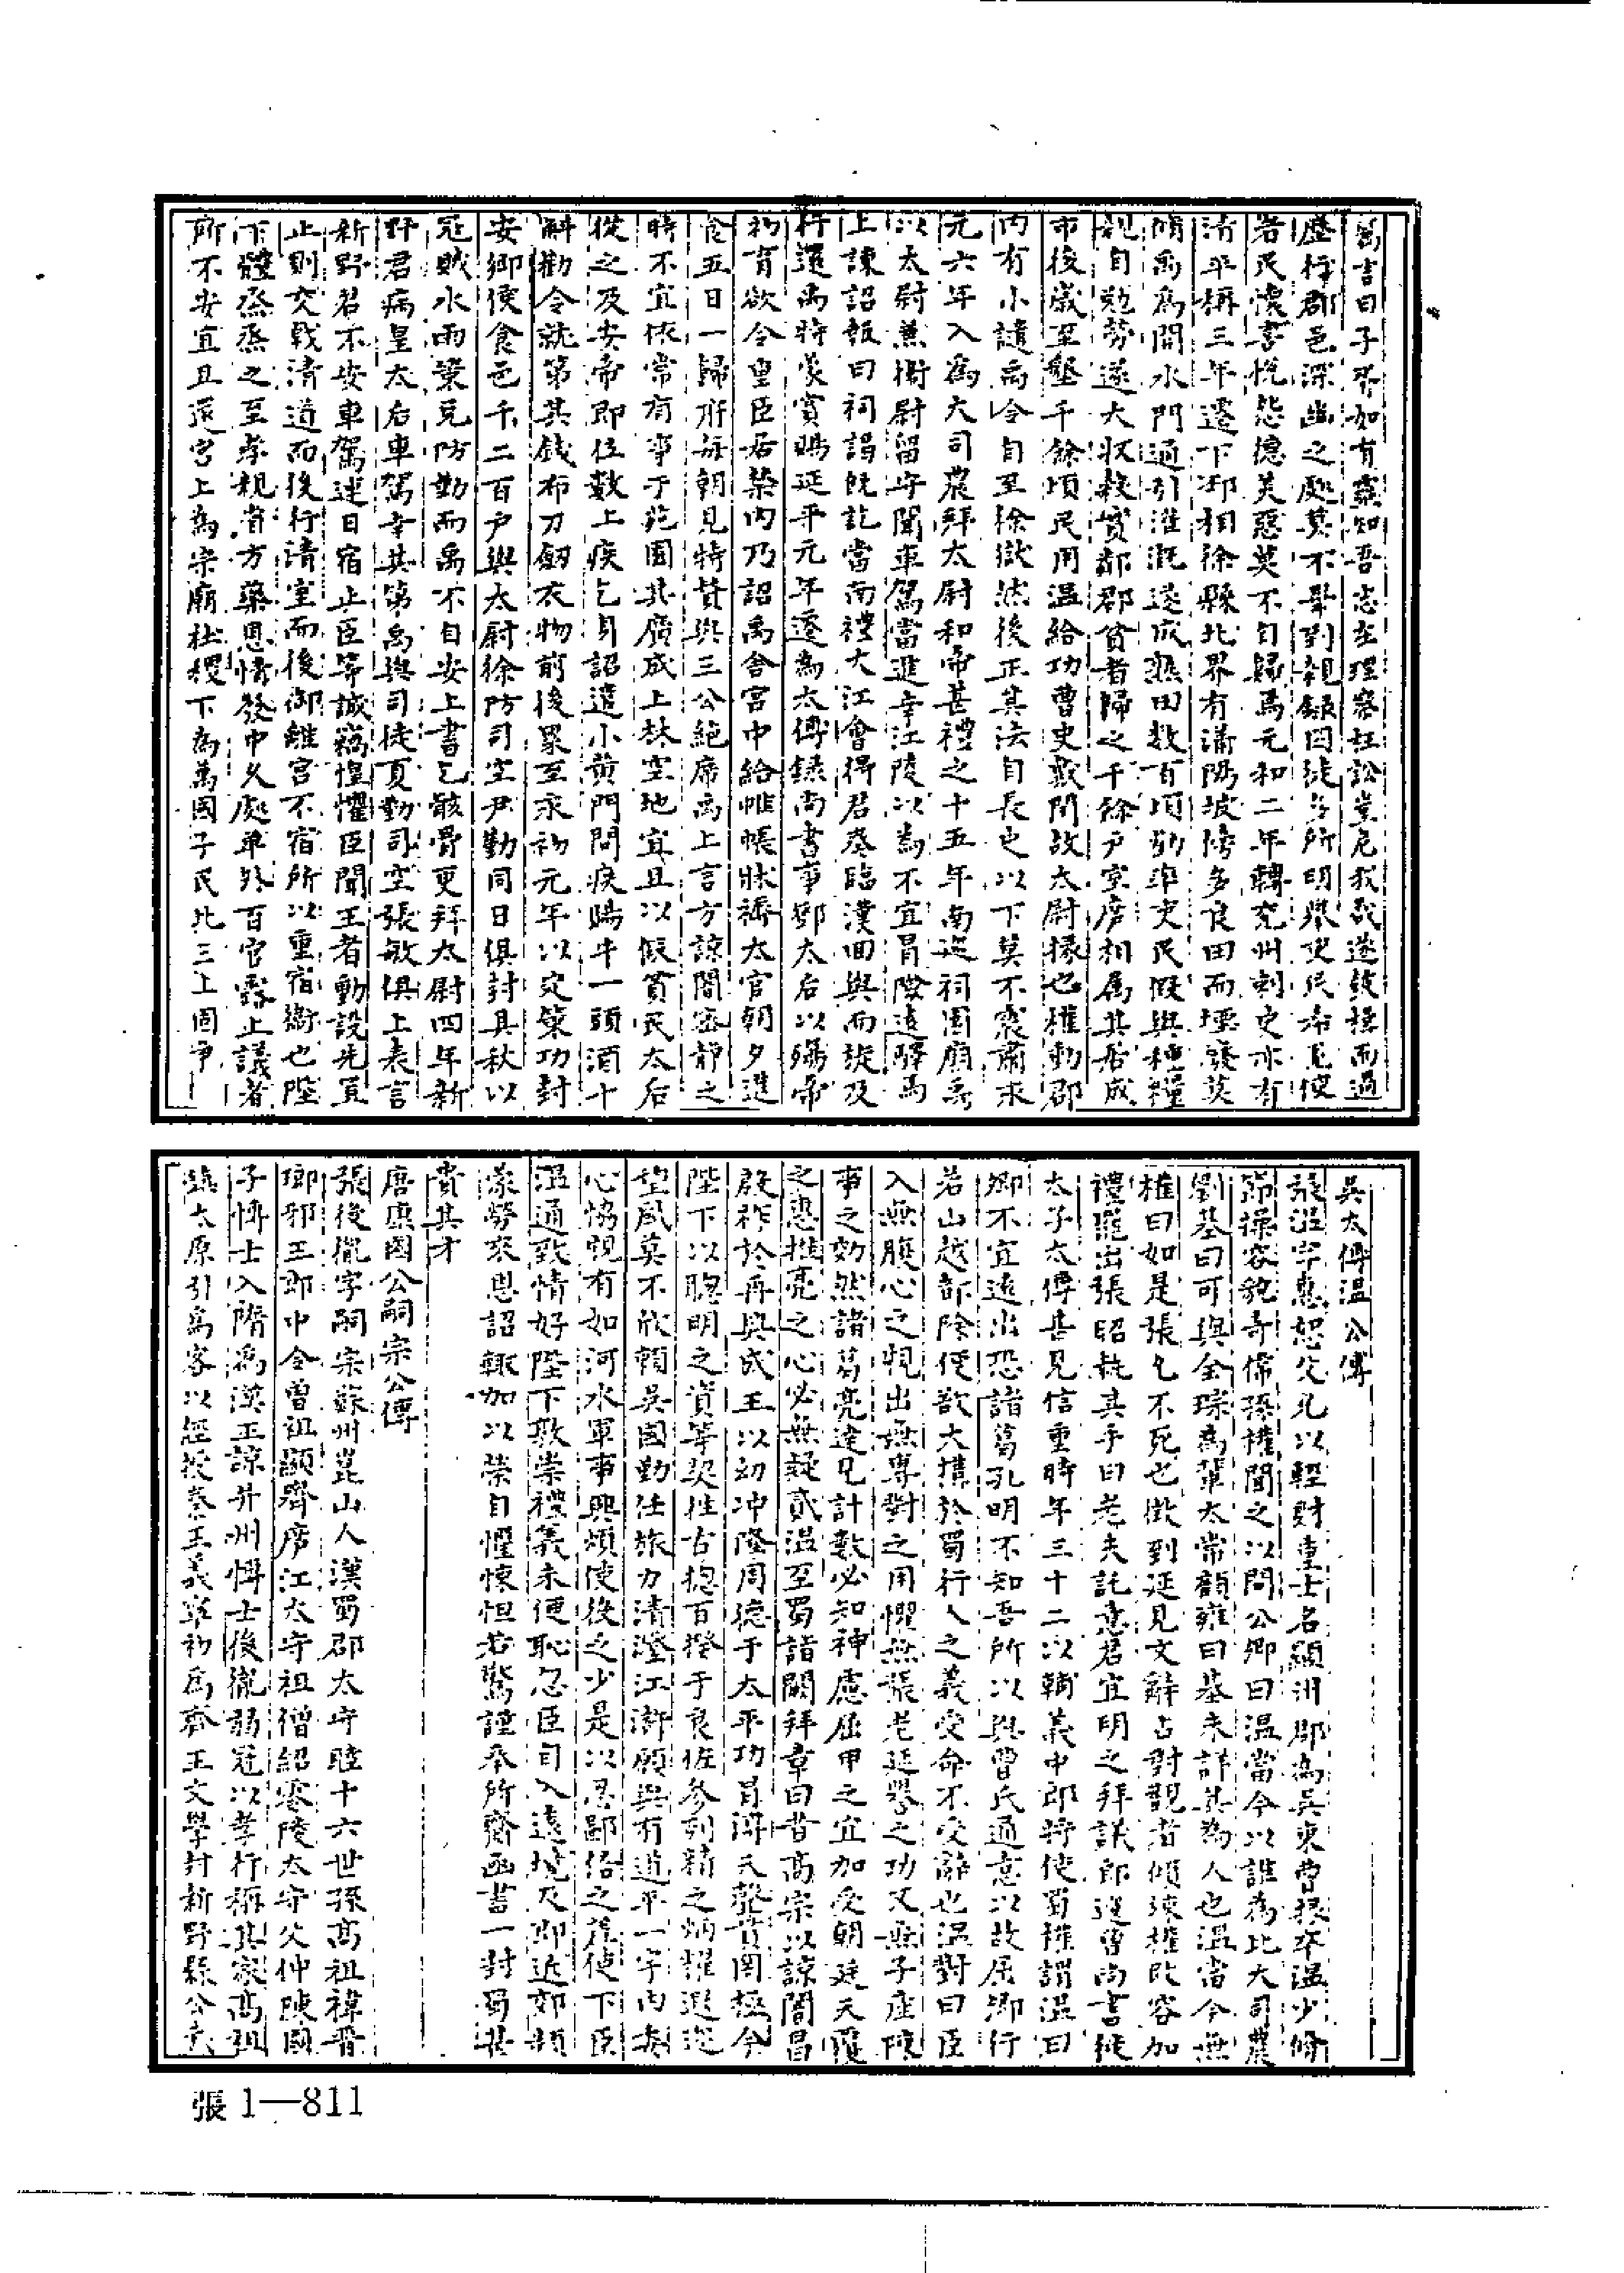 萬言曰子胥如有靈知吾志在理察枉訟豈危我哉遂鼓楫而過
歷行郡邑深幽之處莫不畢到親錄囚徒多所明舉吏民希見使
者民懷喜悅怨德美惡莫不自歸焉元和二年轉兗州刺史亦有
清平稱三年遷下邳相徐縣北界有蒲陽坡傍多良田而堙廢莫
脩禹為開水門通引灌溉遂成熟田數百頃勸率吏民假與種糧
親自勉勞遂大收穀實鄰郡貧者歸之千餘戶室廬相屬其居成
市後歲至墾千餘頃民用溫給功曹史戴閏故太尉掾也權動郡
內有小譴禹令自至徐獄然後正其法自長史以下莫不震肅永
元六年入為大司農拜太尉和帝甚禮之十五年南巡祠園廟禹
以太尉兼衛尉留守聞車駕當進幸江陵以為不宜冒險遠驛馬
上諫詔報曰祠謁既訖當南禮大江會得君奏臨漢回輿而旋及
行還禹特蒙賞賜延平元年遷為太傅錄尚書事鄧太后以殤帝
初育欲令重臣居禁內乃詔禹舍宮中給帷帳牀褥太官朝夕進
食五日一歸府每朝見特贊與三公絕席禹上言方諒闇密靜之
時不宜依常有事于苑囿其廣成上林空地宜且以假貧民太后
從之及安帝即位數上疾乞身詔遣小黃門問疾賜牛一頭酒十
斛勸令就第其錢布刀劍衣物前後累至永初元年以定策功封
安鄉侯食邑千二百戶與太尉徐防司空尹勤同日俱封其秋以
寇賊水雨策免防勤而禹不自安上書乞骸骨更拜太尉四年新
野君病皇太后車駕幸其第禹與司徒夏勤司空張敏俱上表言
新野君不安車駕連日宿止臣等誠竊惶懼臣聞王者動設先置
止則交戟清道而後行清室而後御離宮不宿所以重宿衛也陛
下體烝烝之至孝親省方藥恩情發中久處單外百官露止議者
所不安宜且還宮上為宗廟社稷下為萬國子民比三上固爭
吳太傅溫公傳
張溫字惠恕父允以輕財重士名顯州郡為吳東曹掾卒溫少脩
節操容貌奇偉孫權聞之以問公卿曰溫當今以誰為比大司農
劉基曰可與全琮為輩太常顧雍曰基未詳其為人也溫當今無
權曰如是張允不死也徵到延見文辭占對觀者傾竦權改容加
禮罷出張昭執其手曰老夫託意君宜明之拜議郎選曹尚書徙
太子太傅甚見信重時年三十二以輔義中郎將使蜀權謂溫曰
卿不宜遠出恐諸葛孔明不知吾所以與曹氏通意以故屈卿行
若山越都除便欲大搆於蜀行人之義受命不受辭也溫對曰臣
入無腹心之規出無專對之用懼無張老延譽之功又無子產陳
事之効然諸葛亮達見計數必知神慮屈申之宜加受朝廷天覆
之惠推亮之心必無疑貳溫至蜀詣闕拜章曰昔高宗以諒闇昌
殷祚於再興成王以幼冲隆周德于太平功冒溥天聲貫罔極今
陛下以聰明之資等契往古總百揆于良佐參列精之炳耀遐邇
望風莫不欣賴吳國勤任旅力清澄江滸願與有道平一宇內委
心協規有如河水軍事興煩使役之少是以忍鄙倍之羞使下臣
溫通致情好陛下敦崇禮義未便恥忽臣自入遠境及即近郊頻
蒙勞來恩詔輒加以榮自懼悚怛若驚謹奉所齎函書一封蜀甚
貴其才
唐康國公嗣宗公傳
張後胤字嗣宗蘇州崑山人漢蜀郡太守睦十六世孫高祖禕晉
瑯邪王郎中令曾祖顯齊廬江太守祖僧紹零陵太守父仲陳國
子博士入隋為漢王諒并州博士後胤弱冠以孝行稱其家高祖
鎮太原引為客以經授秦王義寧初為齊王文學封新野縣公六
張1—811